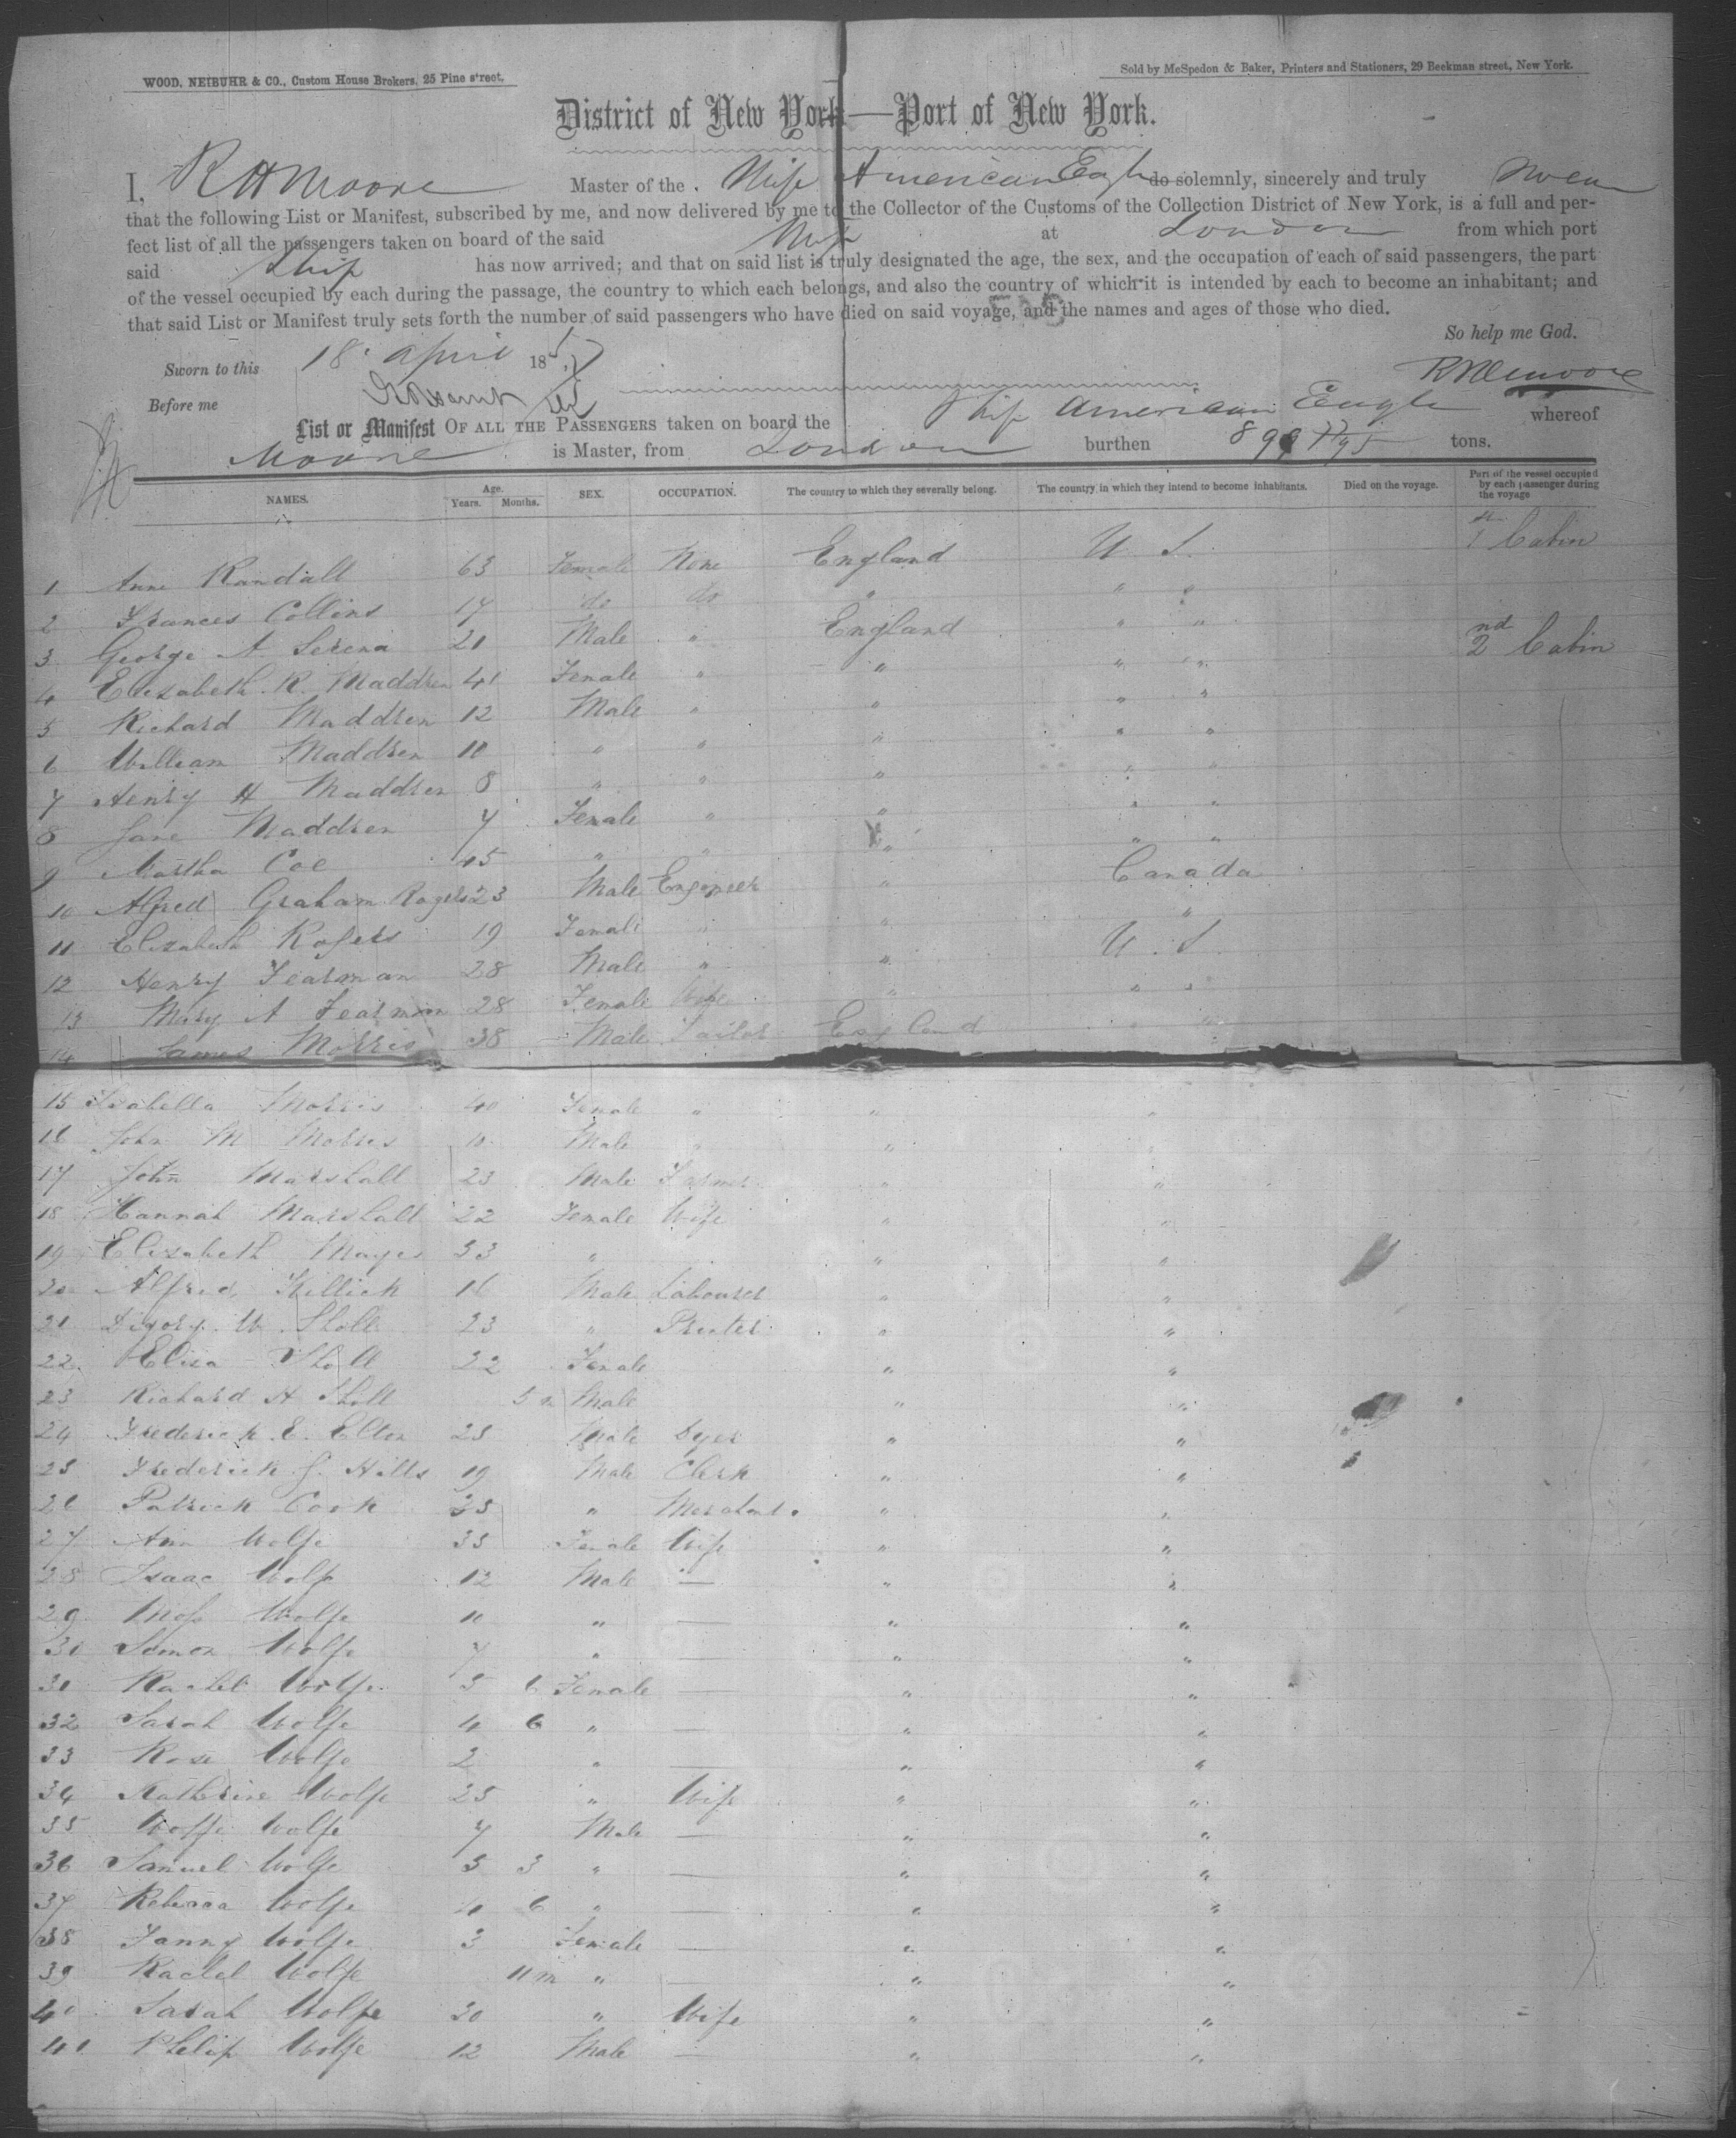 WOOD, NEIBUHR & CO., Custom House Brokers, 25 Pine street.
Sold by McSpedon & Baker, Printers and Stationers, 29 Beekman street, New York.
District of New York—Port of New York.
I, R H Moore Master of the Ship American Eagle do solemnly, sincerely and truly swear
that the following List or Manifest, subscribed by me, and now delivered by me to the Collector of the Customs of the Collection District of New York, is a full and per-
fect list of all the passengers taken on board of the said Ship at London from which port
said Ship has now arrived; and that on said list is truly designated the age, the sex, and the occupation of each of said passengers, the part
of the vessel occupied by each during the passage, the country to which each belongs, and also the country of which it is intended by each to become an inhabitant; and
that said List or Manifest truly sets forth the number of said passengers who have died on said voyage, and the names and ages of those who died.
So help me God.
Sworn to this 18 April 1857
R H Moore
Before me
List or Manifest OF ALL THE PASSENGERS taken on board the Ship American Eagle whereof
Moore is Master, from London burthen tons.
NAMES. Age. Years. Months. SEX. OCCUPATION. The country to which they severally belong. The country in which they intend to become inhabitants. Died on the voyage. Part of the vessel occupied by each passenger during the voyage
1 Anne Randall 63 Female None England U S. 1st Cabin
2 Frances Collins 17 do do " " "
3 George A Serena 20 Male " England " " 2nd Cabin
4 Elizabeth R. Maddren 41 Female " " " "
5 Richard Maddren 12 Male " " " "
6 William Maddren 10 " " " " "
7 Henry H Maddren 8 " " " " "
8 Jane Maddren 7 Female " " " "
9 Martha Coe 45 " " " " "
10 Alfred Graham Rogers 23 Male Engineer " Canada
11 Elizabeth Rogers 19 Female " " "
12 Henry Fearman 28 Male " " U. S.
13 Mary A Fearman 28 Female Wife " " "
14 James Morris 38 Male Tailor England " "
15 Isabella Morris 40 Female " " "
16 John M Morris 10 Male " " "
17 John Marshall 23 Male Farmer " "
18 Hannah Marshall 22 Female Wife " "
19 Elizabeth Mayes 33 " " "
20 Alfred Killick 16 Male Labourer " "
21 Digory W. Sholl 23 " Printer " "
22 Eliza Sholl 22 Female " "
23 Richard H Sholl 5 m Male " "
24 Frederick E. Elton 25 Male Dyer " "
25 Frederick J. Hills 19 Male Clerk " "
26 Patrick Cook 25 " Merchant " "
27 Ann Wolfe 35 Female Wife " "
28 Isaac Wolfe 12 Male — " "
29 Moss Wolfe 10 " — " "
30 Simon Wolfe 7 " — " "
31 Rachel Wolfe 5 6 Female — " "
32 Sarah Wolfe 4 6 " — " "
33 Rose Wolfe 2 " — " "
34 Katherine Wolfe 25 " Wife " "
35 Wolfe Wolfe 7 Male — " "
36 Samuel Wolfe 5 3 " — " "
37 Rebecca Wolfe 4 6 " — " "
38 Fanny Wolfe 3 Female — " "
39 Rachel Wolfe 11 m " — " "
40 Sarah Wolfe 30 " Wife " "
41 Philip Wolfe 12 Male — " "